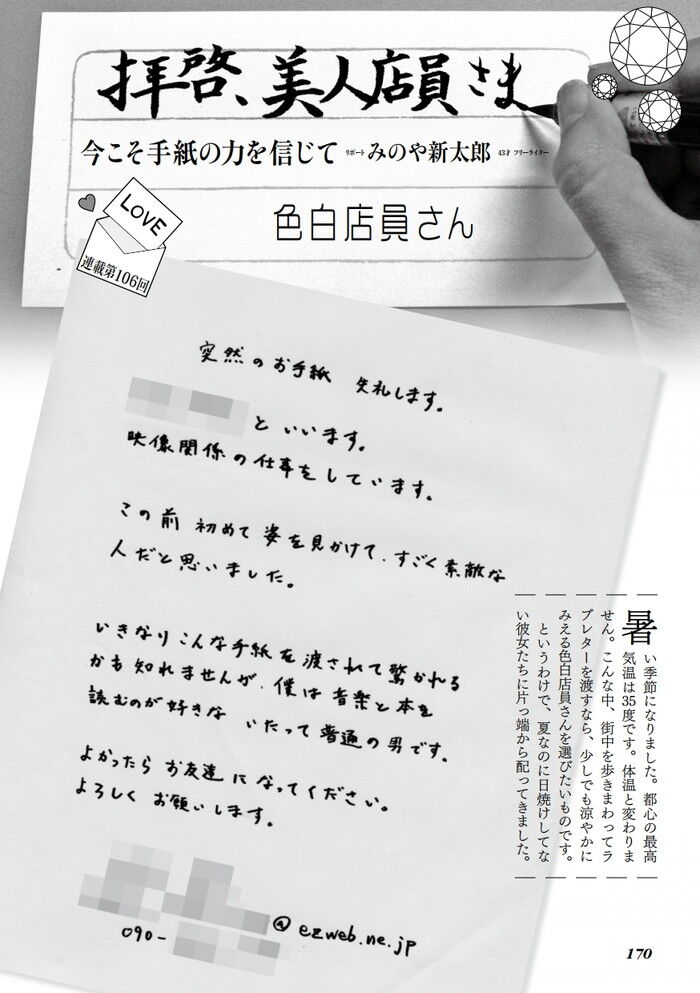 拝啓、美人店員さま
今こそ手紙の力を信じて リポート みのや新太郎 43才 フリーライター
LOVE
連載第106回
色白店員さん
突然のお手紙 失礼します。
といいます。
映像関係の仕事をしています。
この前 初めて 姿を見かけて、すごく素敵な
人だと思いました。
いきなりこんな手紙を渡されて驚かれる
かも知れませんが、僕は音楽と本を
読むのが好きな いたって普通の男です。
よかったら お友達になってください。
よろしく お願いします。
@ezweb.ne.jp
090-
暑い季節になりました。都心の最高
気温は35度です。体温と変わりま
せん。こんな中、街中を歩きまわってラ
ブレターを渡すなら、少しでも涼やかに
みえる色白店員さんを選びたいものです。
というわけで、夏なのに日焼けしてな
い彼女たちに片っ端から配ってきました。
170